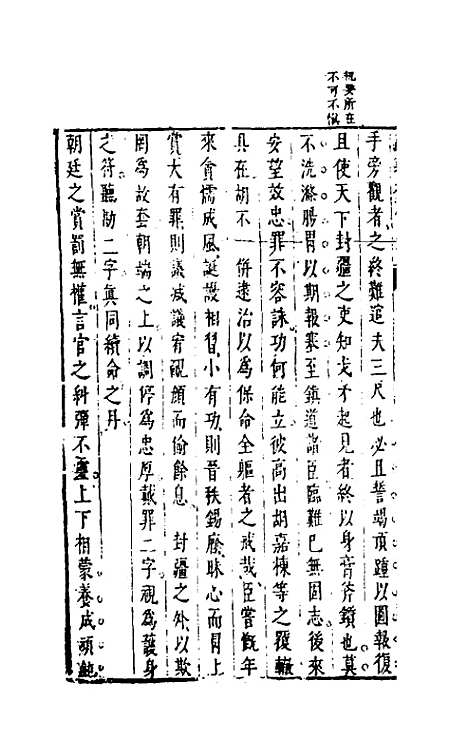 祝要所在
不可不慎
手旁觀者之終難逭夫三尺也必且誓竭頂踵以圖報復
且使天下封疆之吏知戈矛起見者終以身膏斧鑕也莫
不洗滌腸胃以期報塞至鎮道諸臣臨難已無固志後來
安望效忠罪不容誅功何能立彼高出胡嘉棟等之覆轍
具在胡不一併逮治以為保命全軀者之戒哉臣嘗慨年
來貪懦成風誕謾相習小有功則晉秩錫廕昧心而冐上
賞大有罪則議减議宥靦顏而偷餘息　封疆之外以欺
罔為故套朝端之上以調停為忠厚戴罪二字視為護身
之符聽勘二字眞同續命之丹
朝廷之賞罰無權言官之糾彈不靈上下相蒙養成頑鈍